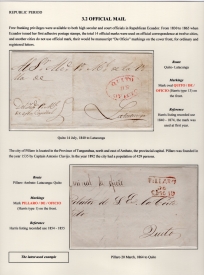 REPUBLIC PERIOD
3.2 OFFICIAL MAIL
Free franking privileges were available to both high secular and court officials in Republican Ecuador. From 1830 to 1865 when
Ecuador issued her first adhesive postage stamps, the total 14 official marks were used on official correspondence at twelve cities,
and another cities do not use official mark, their would be manuscript "De Oficio" markings on the cover front, for ordinary and
registered letters.
Route
Quito-Latacunga
Markings
Mark oval QUITO / DE
OFICIO (Harris type 15) on
the front.
Reference
Harris listing recorded use
1840 – 1870, the mark was
used at first year.
Latacunga
Quito 14 July, 1840 to Latacunga
The city of Pillaro is located in the Province of Tungurahua, north and east of Ambato, the provincial capital. Pillaro was founded in
the year 1535 by Captain Antonio Clavijo. In the year 1892 the city had a population of 829 persons.
Route
Pillaro-Ambato-Latacunga-Quito
Markings
Mark PILLARO / DE / OFICIO
(Harris type 13) on the front.
Reference
Harris listing recorded use 1854 – 1855
Quito
The latest used example
Pillaro 20 March, 1864 to Quito